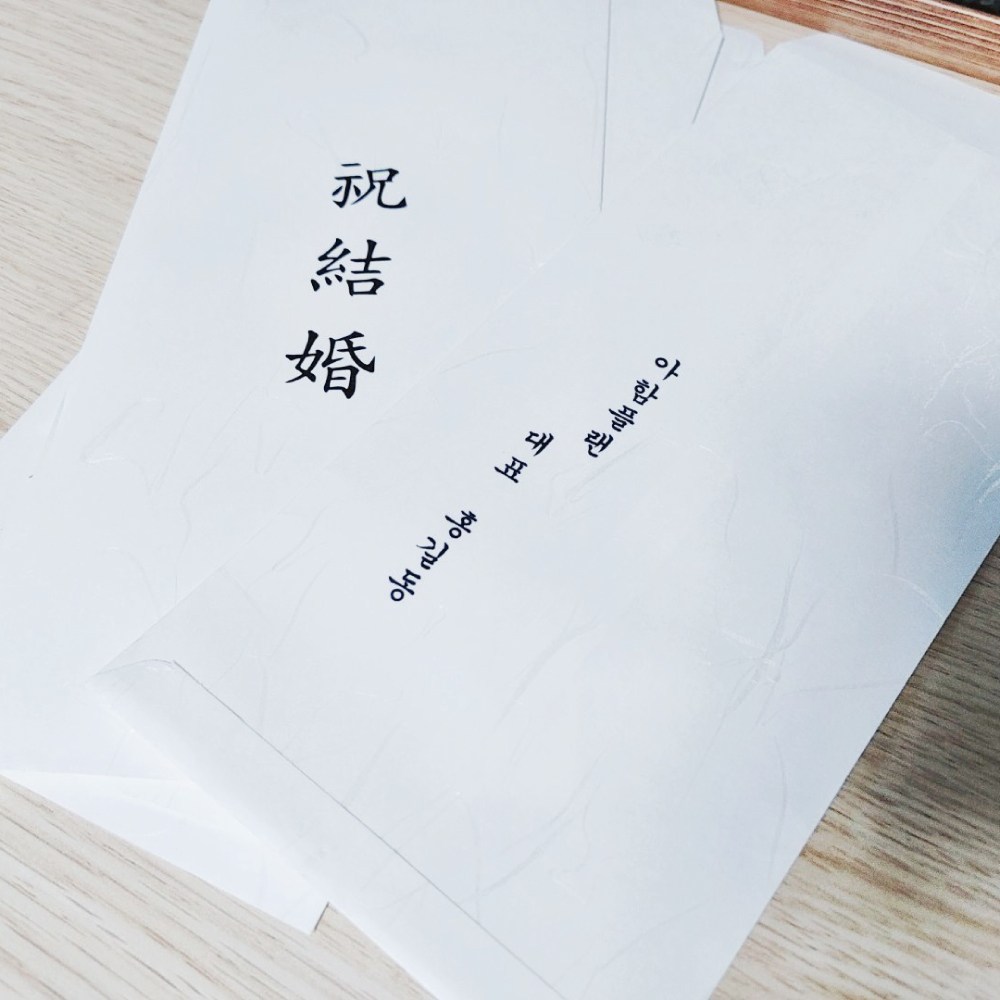 祝結婚
아함플랜 대표 홍길동